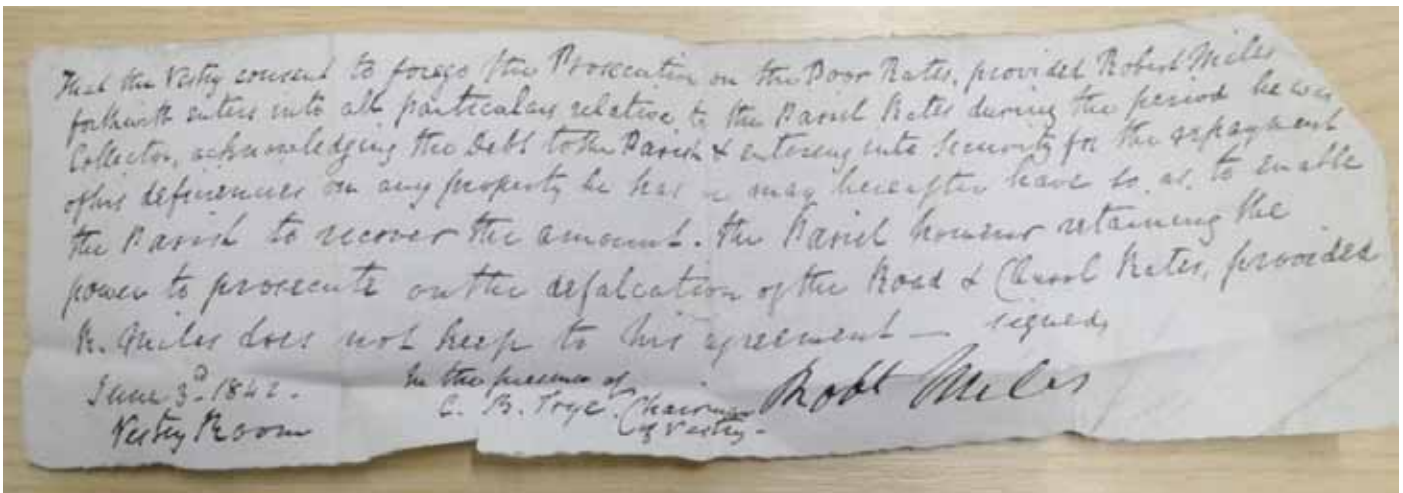 That the Vestry consent to forego the Prosecution on the Poor Rates, provided Robert Miles
forthwith enters into all particulars relative to the Parish Rates during the period he was
Collector, acknowledging the Debt to the Parish & entering into Security for the repayment
of his deficiencies on any property he has or may hereafter have so as to enable
the Parish to recover the amount. the Parish however retaining the
power to prosecute on the defalcation of the Road & Church Rates, provided
R. Miles does not keep to his agreement — signed,
June 3d. 1842.
Vestry Room
In the presence of
C. B. Trye. Chairman
of Vestry.
Robt Miles